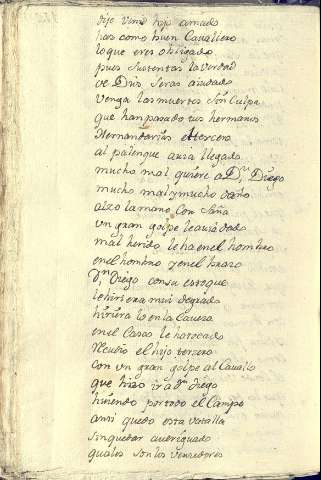 dijo vino hijo amado
has como buen Cavallero
lo que eres obligado
pues sustentas la verdad
de Dios seras aiudado
venga los muertos sin culpa
que han pasado tus hermanos
Hernandarias el tercero
al palenque auia llegado
mucho mal quiere a Dn Diego
mucho mal y mucho daño
alzo la mano con saña
un gran golpe le auia dado
mal herido le ha en el hombro
en el hombro y en el brazo
Dn Diego con su estoque
le hiriera mui de grado
hiriera lo en la Caueza
en el Casco le ha tocado
el hijo tercero
con un gran golpe al Cauallo
que hizo ir a Dn Diego
huiendo por todo el Campo
ansi quedo esta vatalla
sin quedar aueriguado
quales son los vencedores